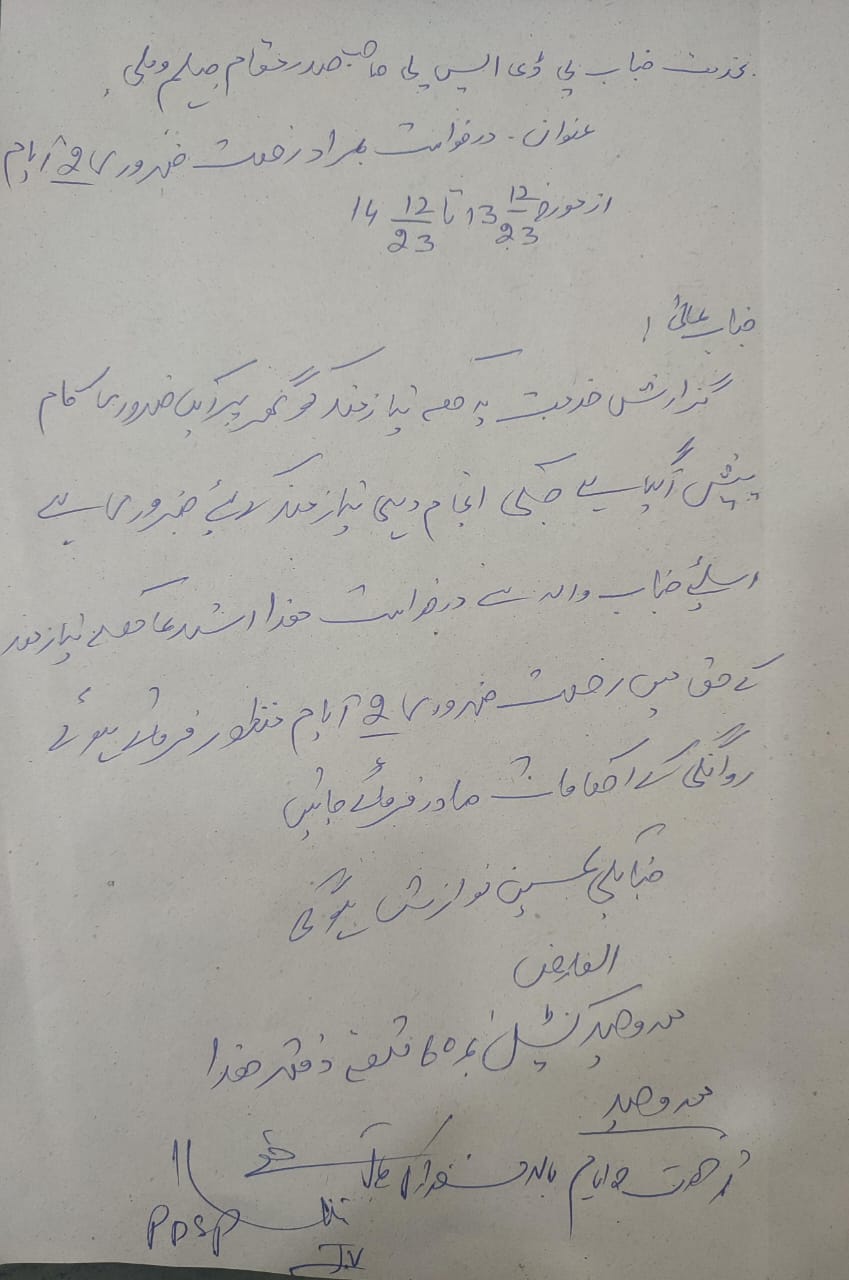 بخدمت جناب پی ڈی ایس پی صاحب صدر مقام جہلم ویلی
عنوان - درخواست بمراد رخصت ضروری 2 ایام
از مورخہ 13 12/23 تا 14 12/23
جناب عالی!
گزارش خدمت ہیکہ نیازمند کو گھر پر ایک ضروری کام
پیش آگیا ہے جسکی انجام دہی نیازمند کیلئے ضروری ہے
اسلئے جناب والا سے درخواست ہذا استدعا ہیکہ نیازمند
کے حق میں رخصت ضروری 2 ایام منظور فرماتے ہوئے
روانگی کے احکامات صادر فرمائے جائیں
جناب کی عین نوازش ہوگی
العارض
محمد وحید کنسٹیبل نمبر 60 متعلقہ دفتر ہذا
محمد وحید
رخصت 2 ایام
PDSP
J.V